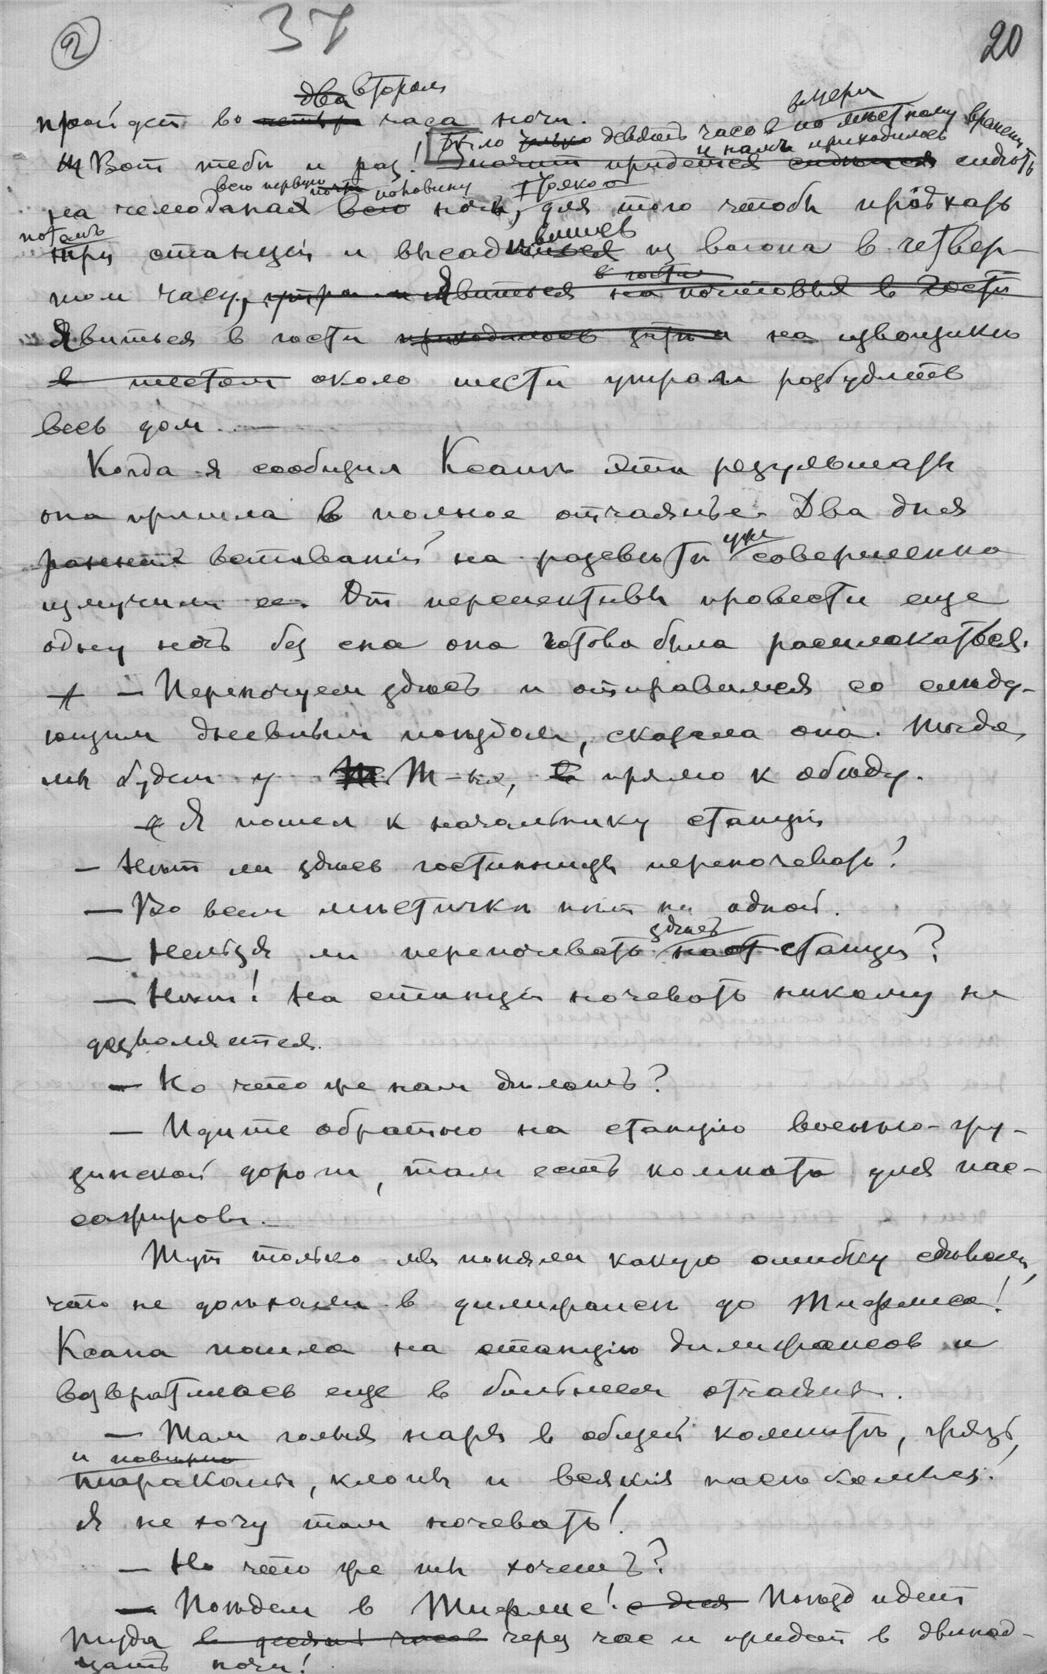 2 37 20
два втором
пройдет во четыре часа ночи.
вечера
Вот тебе и раз! Было только девять часов по мѣстному времени
и намъ приходилось
значит придется сидѣть
всю первую почти половину только
на чемоданах всю ночь, для того чтобы проѣхать
потомъ
три станціи и высадившись из вагона в четвер-
в гости
том часу, утра и явиться на почтовых в гости
Явиться в гости приходилось на извощике
в шестом около шести утра и разбудить
весь дом.
Когда я сообщил Ксанѣ эти результаты
она пришла в полное отчаянье. Два дня
уже
ранних вставаній на разсвѣтѣ совершенно
измучили ее. От перспективы провести еще
одну ночь без сна она готова была расплакаться.
— Переночуем здѣсь и отправимся со слѣду-
ющим дневным поѣздом, сказала она. Тогда
мы будем у Т-ва, прямо к обѣду.
Я пошел к начальнику станціи
— Нѣт ли здѣсь гостинницы переночевать?
— Во всем мѣстечкѣ нѣт ни одной.
здѣсь
— Нельзя ли переночевать на станціи?
— Нѣт! На станціи ночевать никому не
дозволяется.
— Но что же нам дѣлать?
— Идите обратно на станцію военно-гру-
зинской дороги, там есть комнаты для пас-
сажиров.
Тут только мы поняли какую ошибку сдѣлали,
что не доѣхали в дилижансѣ до Тифлиса!
Ксана пошла на станцію дилижансов и
возвратилась еще в большем отчаяніи.
— Там голыя нары в общей комнатѣ, грязь,
и повѣрно
тараканы, клопы и всякія насѣкомыя!
Я не хочу там ночевать!
— Но что же ты хочешь?
— Поѣдем в Тифлис! Поѣзд идет
туда в десять часов через час и придет в двѣнад-
цать ночи!